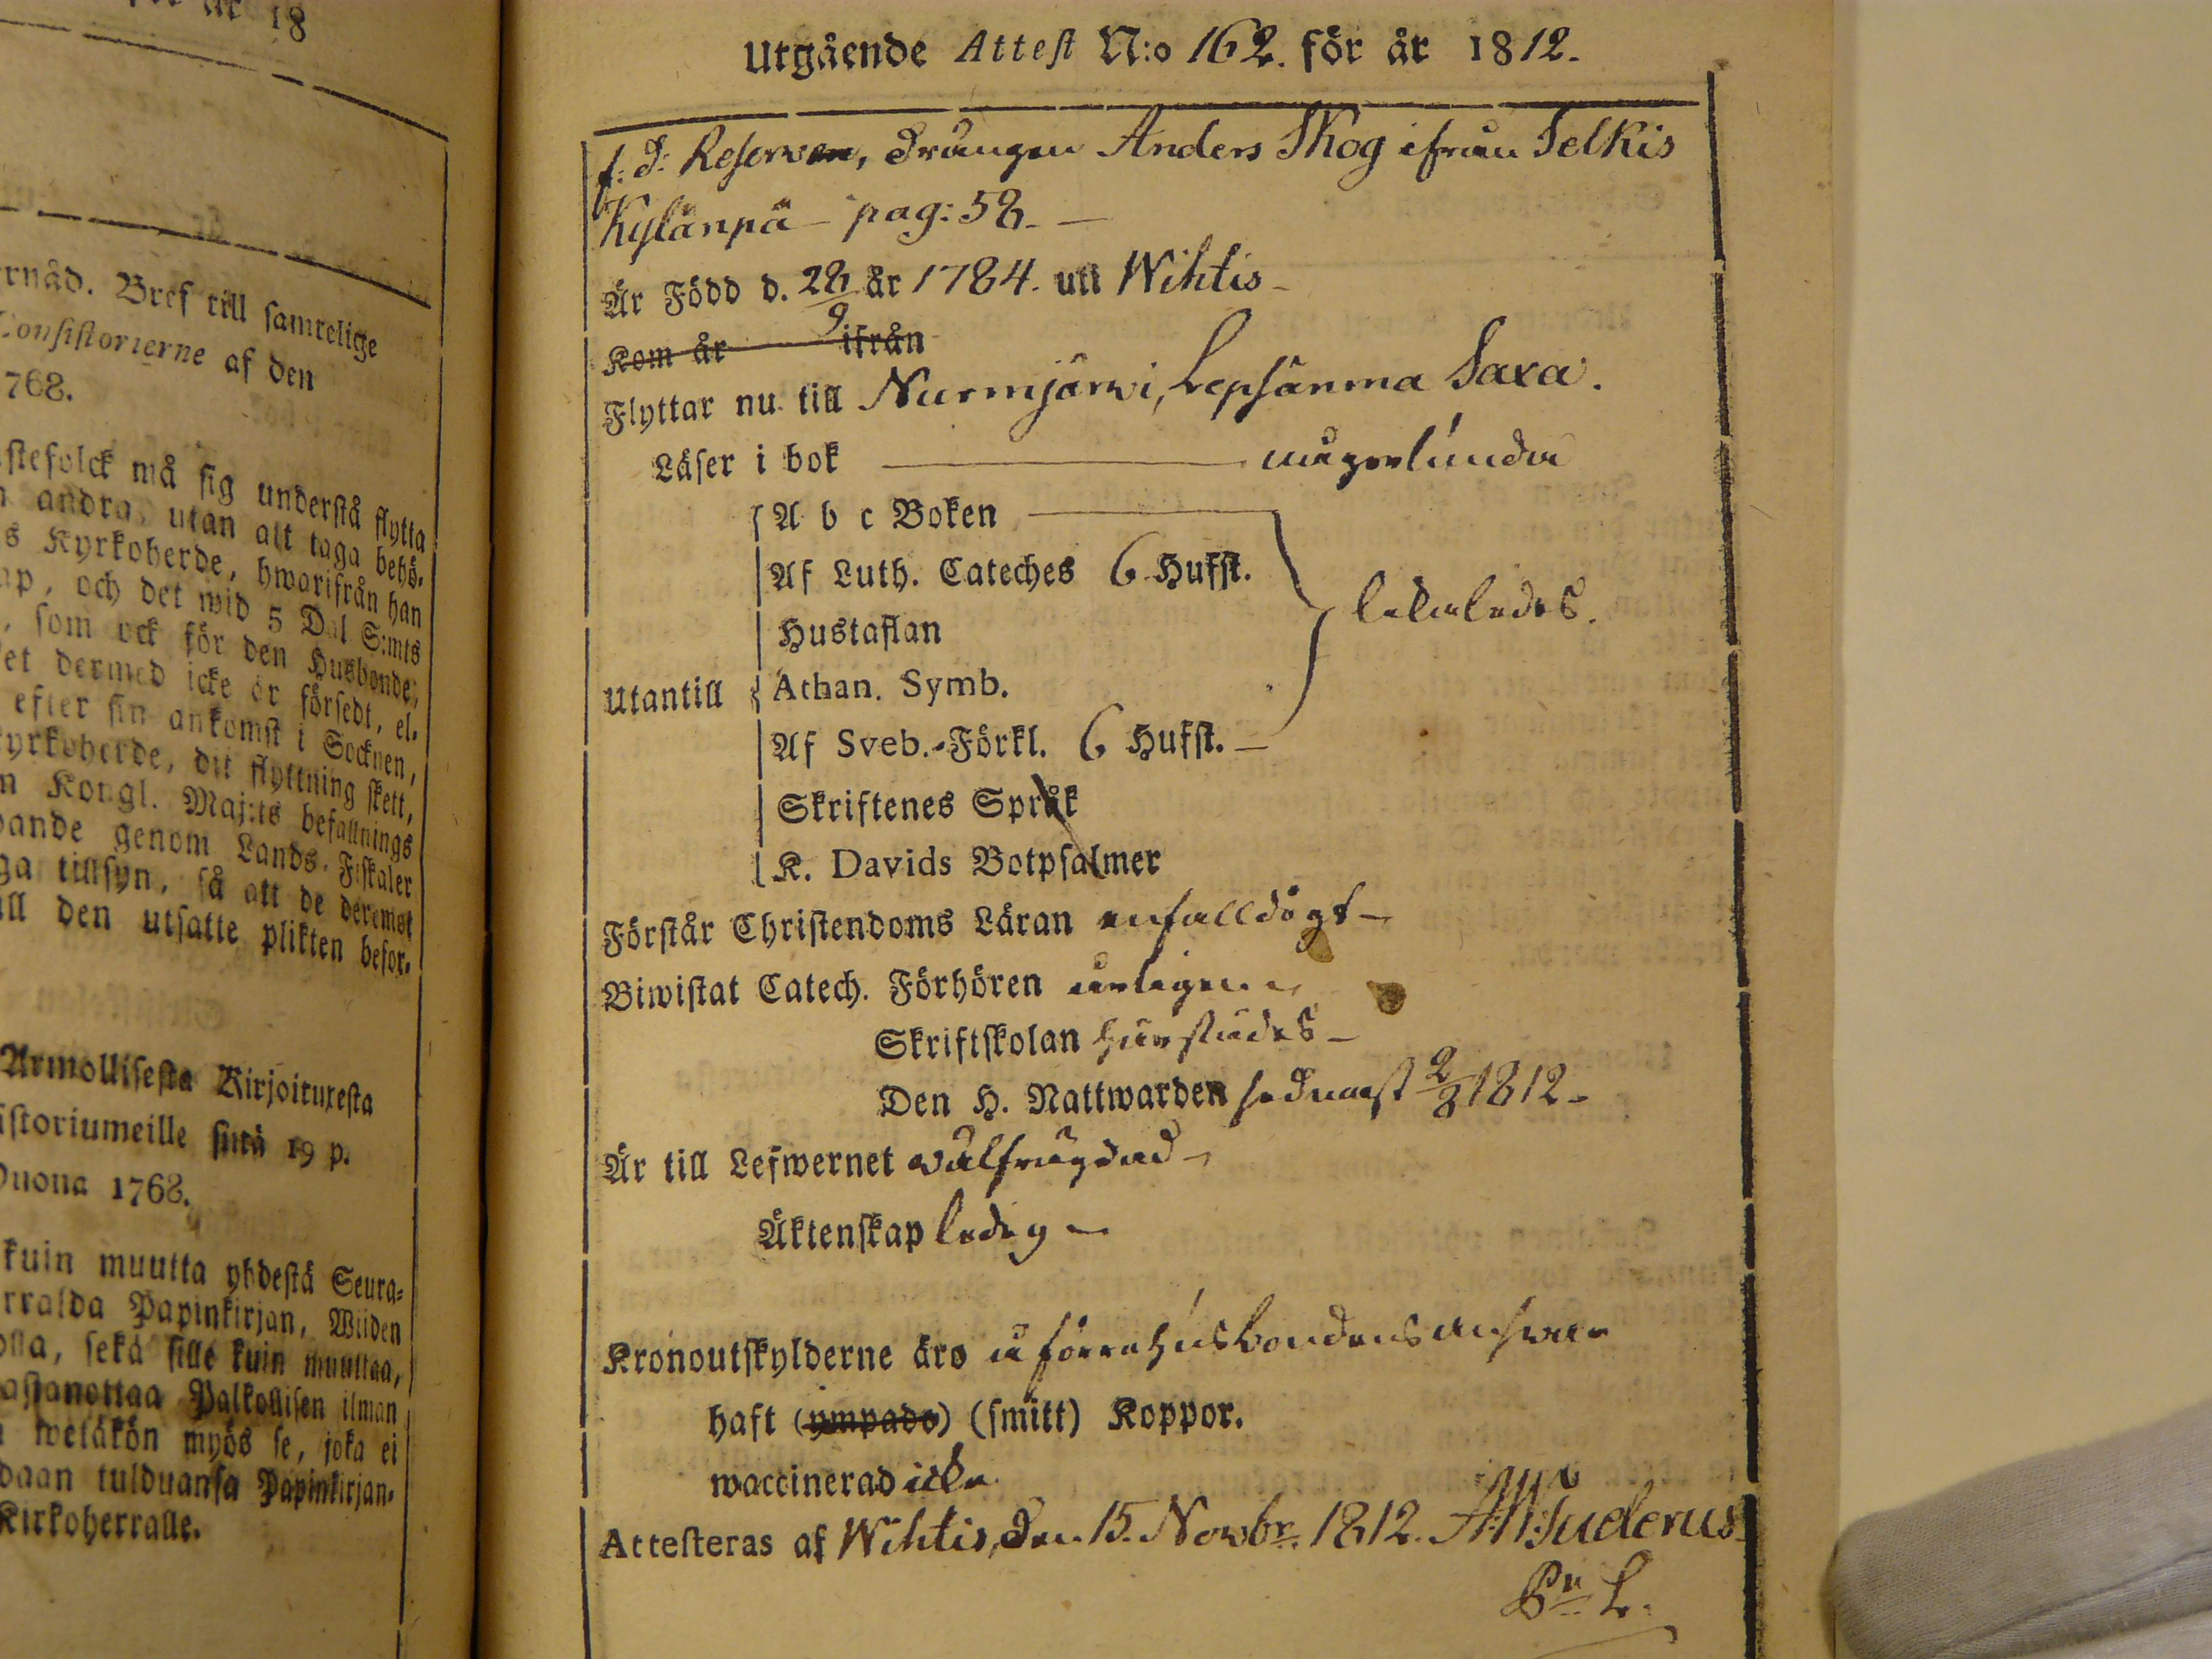 18
rnåd. Bref till samtelige
Consistorierne af den
768.
stefolck må sig understå flytta
andra, utan att taga behö-
s Kyrkoherde, hwarifrån han
ap, och det wid 5 Dal S:mts
, som ock för den Husbonde,
et dermed icke är försedt, el-
efter sin ankomst i Socknen,
yrkoherde, dit flyttning skett,
n Kongl. Maj:ts befallnings
ande genom Lands-Fiskaler
ga tillsyn, så att de deremot
ll den utsatte plikten befor-
Armollisesta Kirjoituxesta
istoriumeille siitä 19 p.
uona 1768.
kuin muutta yhdestä Seura-
rralda Papinkirjan, Wiiden
olla, sekä sille kuin muuttaa,
astanottaa Palkollisen ilman
wetäkön myös se, joka ei
daan tulduansa Papinkirjan-
Kirkoherralle.
Utgående Attest N:o 162. för år 1812.
f: d: Reserven, drängen Anders Skog ifrån Selkis
Kylänpä - pag: 58. -
Är Född d. 28/9 år 1784. uti Wihtis -
Kom år ifrån
Flyttar nu till Nurmjärwi, Lepsänma Saxa.
Läser i bok någorlunda
A b c Boken
Af Luth. Cateches 6 Hufst.
Hustaflan
likaledes.
Utantill
Athan. Symb.
Af Sveb. Förkl. 6 Hufst. -
Skriftenes Språk
K. Davids Botpsalmer
Förstår Christendoms Läran enfalldigt -
Biwistat Catech. Förhören årligen
Skriftskolan härstädes -
Den H. Nattwarden sednast 2/8 1812 -
Är till Lefwernet wälfrägdad -
Äktenskap ledig -
Kronoutskylderne äro å förra husbondens answar
haft (ympade) (smitt) Koppor.
waccinerad icke
Attesteras af Wihtis, den 15. Novbr. 1812. A:W:Tuderus